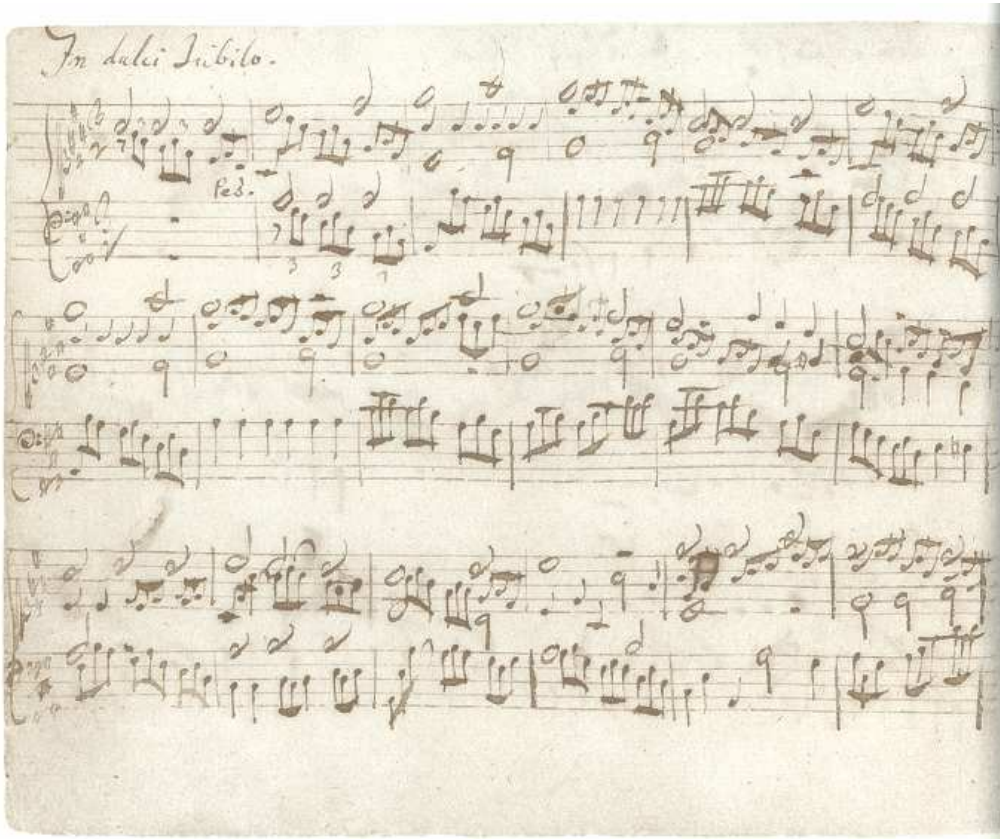 In dulci Jubilo.
3 3
Ped.
3 3